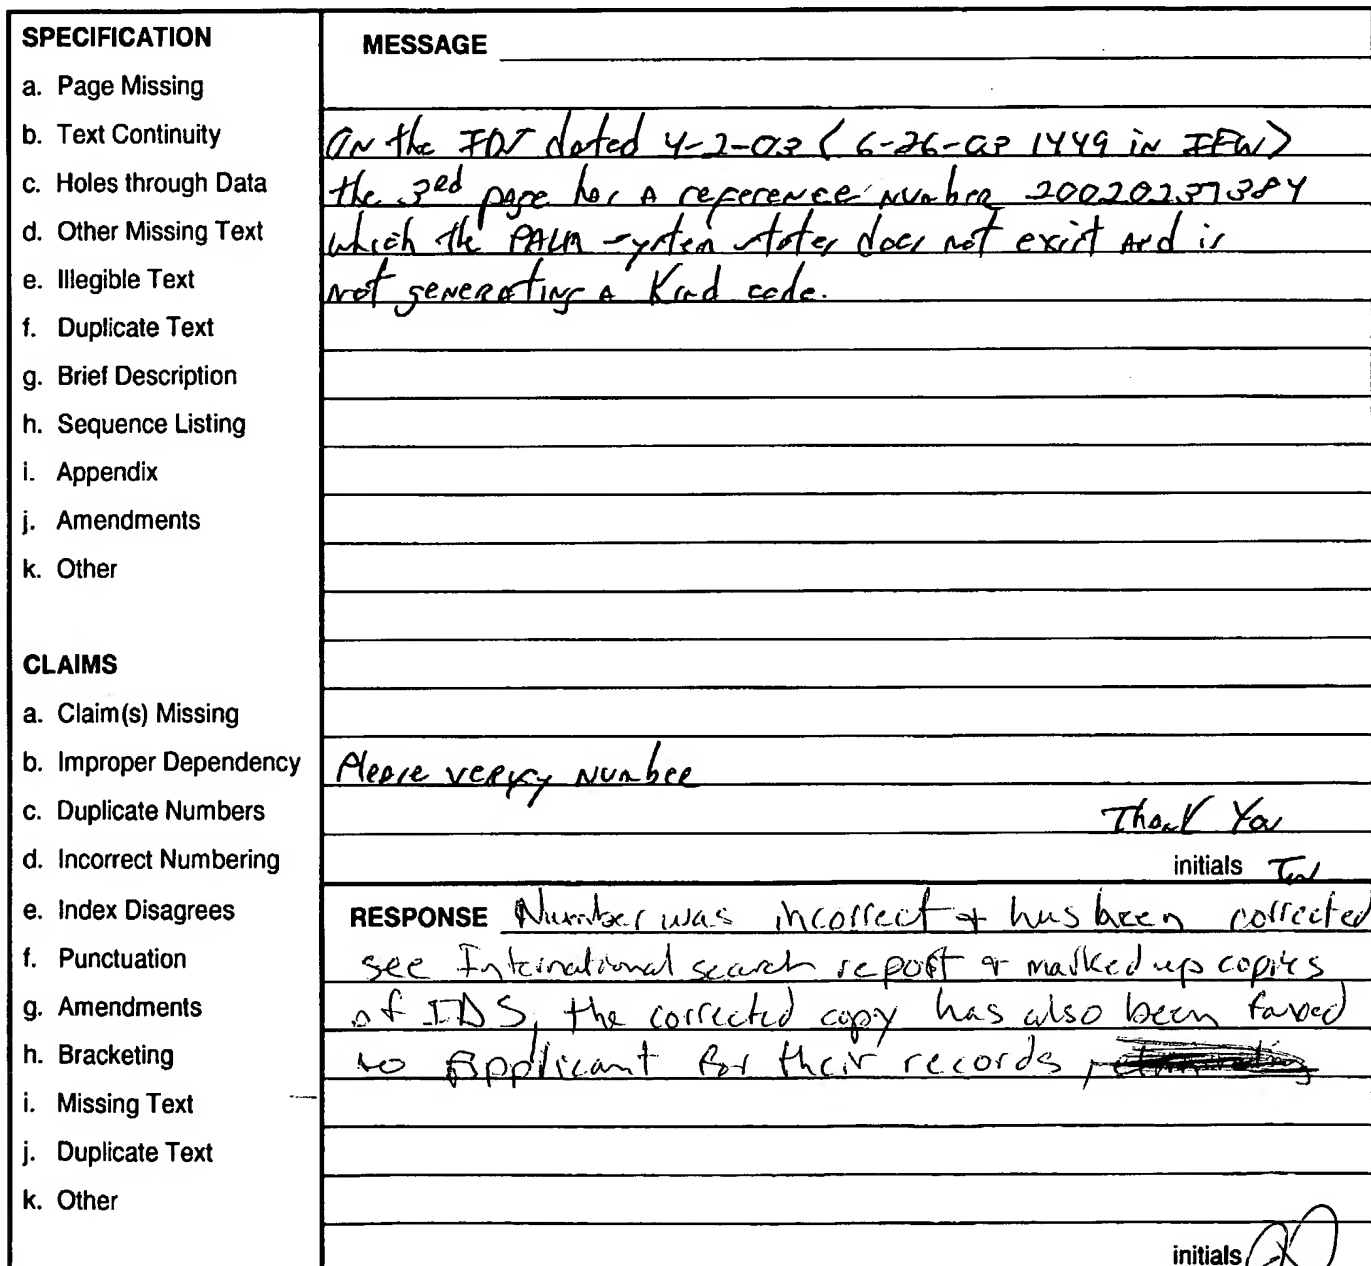 SPECIFICATION
a. Page Missing
b. Text Continuity
c. Holes through Data
d. Other Missing Text
e. Illegible Text
f. Duplicate Text
g. Brief Description
h. Sequence Listing
i. Appendix
j. Amendments
k. Other
CLAIMS
a. Claim(s) Missing
b. Improper Dependency
c. Duplicate Numbers
d. Incorrect Numbering
e. Index Disagrees
f. Punctuation
g. Amendments
h. Bracketing
i. Missing Text
j. Duplicate Text
k. Other
MESSAGE
On the IDS dated 4-2-03 (6-26-03 1449 in IFW)
the 3rd page has A reference number 20020237384
which the PALM system states does not exist and is
not generating a Kind code.
Please verify number
Thank You
initials TW
RESPONSE Number was incorrect + has been corrected
see International search report & marked up copies
of IDS, the corrected copy has also been faxed
to Applicant for their records
initials